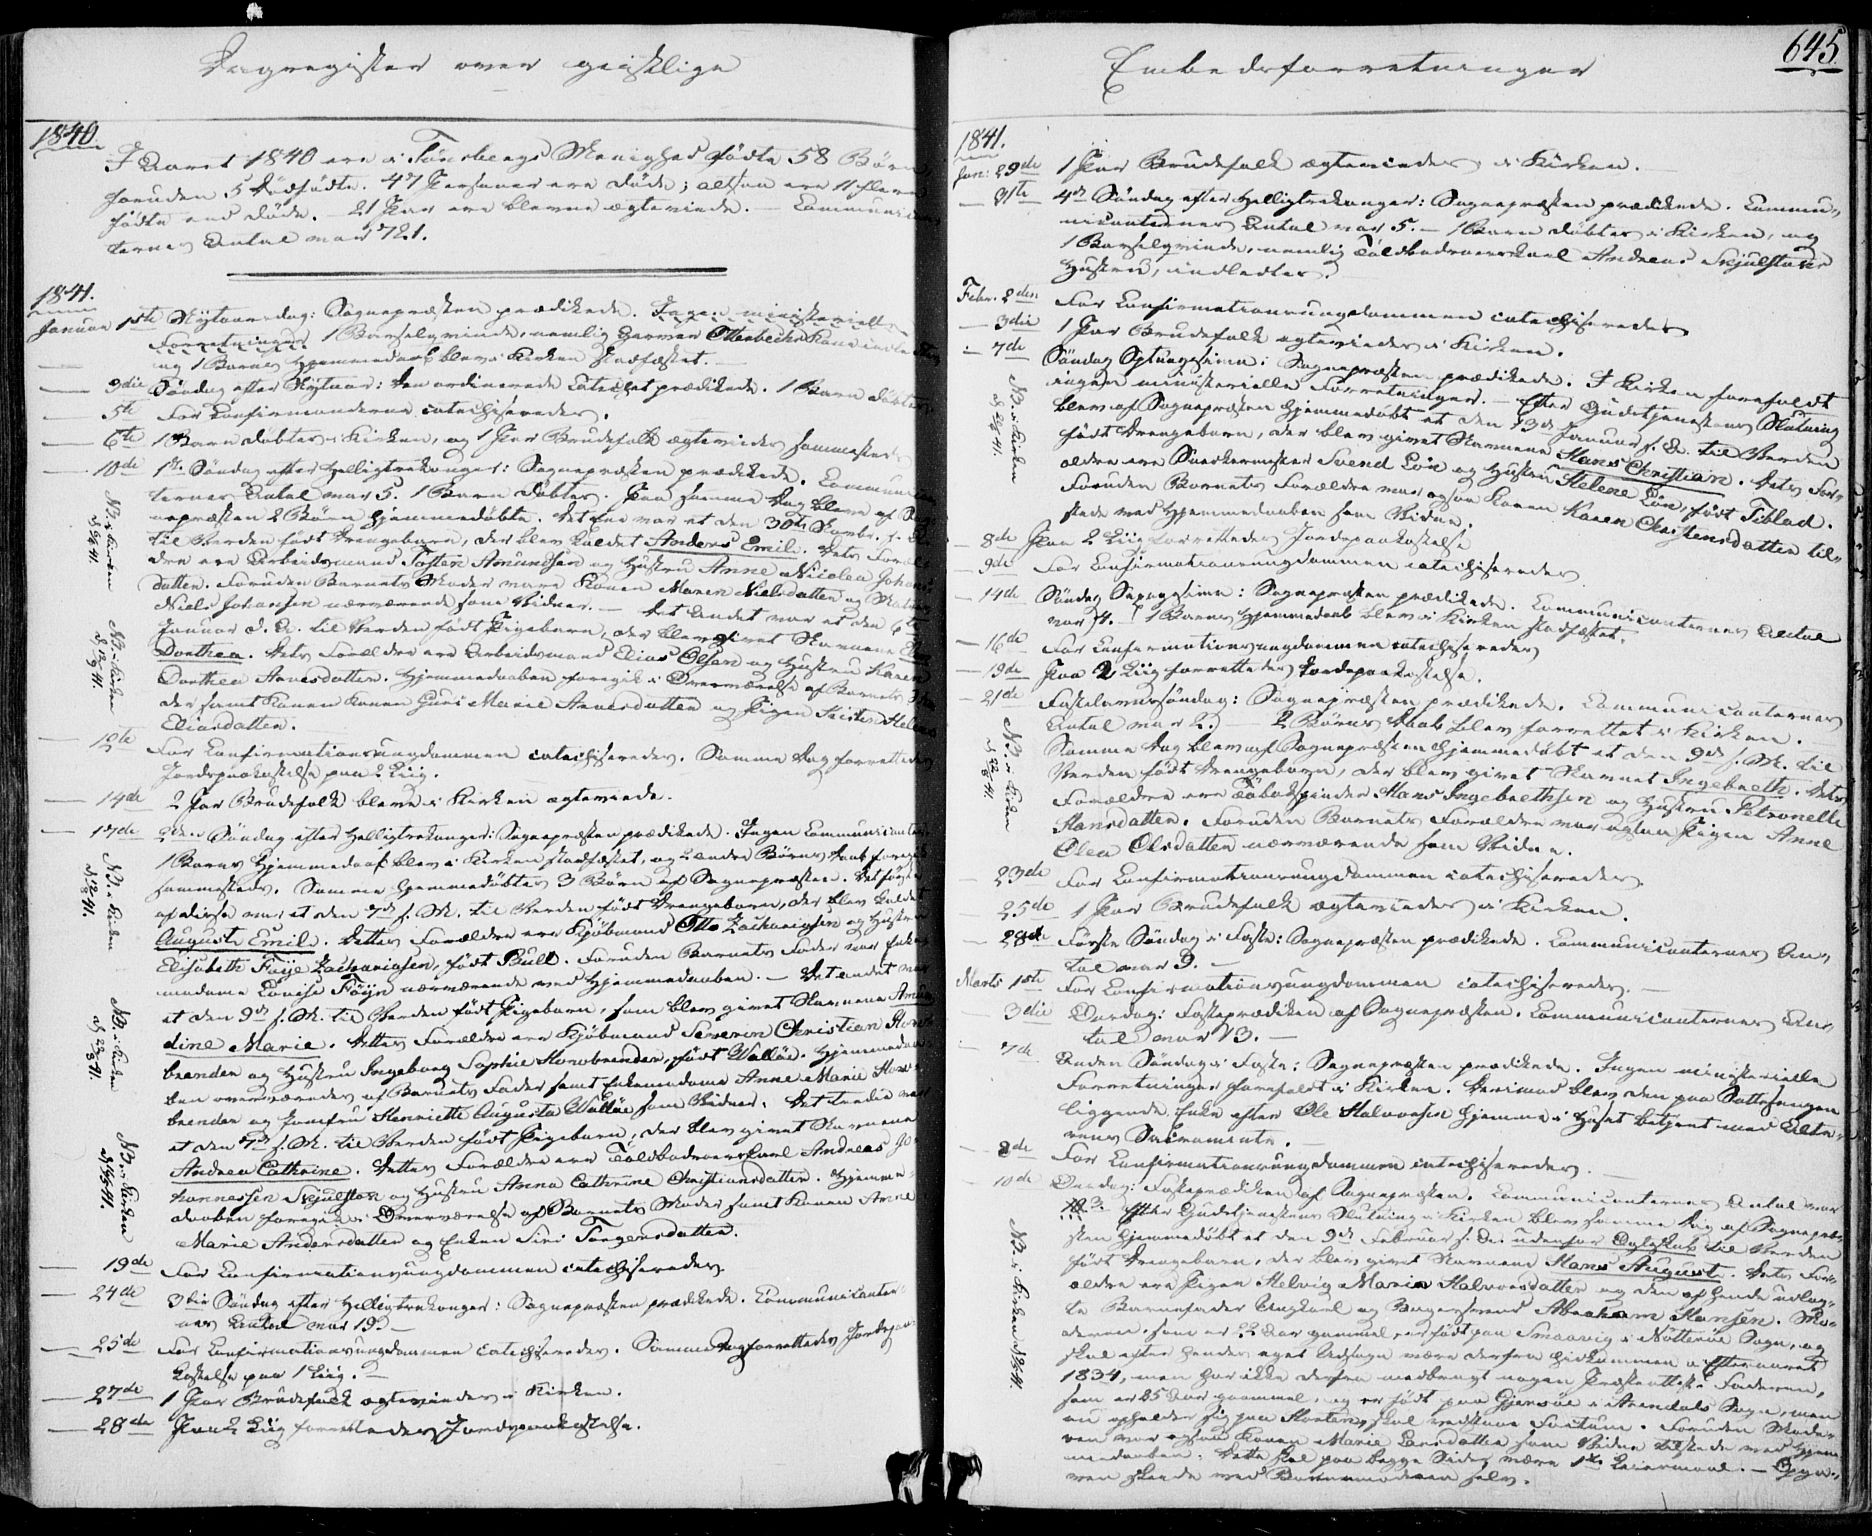 Dagregister over geistlige
1840.
I Aaret 1840 ere i Tönsbergs Menighed fødte 58 Børn
foruden 5 dødfødte. 47 Personer ere døde; altsaa ere 11 flere
fødte end døde. - 21 Par ere blevne ægteviede. - Communican-
ternes Antal var 721.
1841.
Januar 1ste Nytaarsdag: Sognepræsten prædikede. Ingen ministerielle
Forretninger. 1 Barselqvinde, nemlig Otterbechs Kone indledtes
og 1 Barns Hjemmedaab blev i Kirken stadfæstet.
3die Søndag efter Nytaar: Den ordinerede Catechet prædikede. 1 Barn døbtes.
5te For Confirmanderne catechiseredes.
6te 1 Barn døbtes i Kirken, og 1 Par Brudefolk ægteviedes sammesteds.
10de 1ste Søndag efter Helligtrekonger: Sognepræsten prædikede. Communican-
ternes Antal var 5. 1 Barn døbtes. Paa samme Dag bleve af Sog-
nepræsten 2 Børn hjemmedøbte. Det ene var et den 30te
til Verden født Drengebarn, der blev kaldet Anders Emil. Dets Foræl-
dre ere Arbeidsmand Tosten Amundsen og Hustru Anne Nicolea Johans-
datter. Foruden Barnets Moder vare Konen Maren Nielsdatter og
Niels Johansen nærværende som Vidner. - Det Andet var et den 6te
Januar d. A. til Verden født Pigebarn, der blev givet Navnene
Dorthea. Dets Forældre ere Arbeidsmand Elias Olsen og Hustru Karen
Dorthea Arnesdatter. Hjemmedaaben foregik i Overværelse af Barnets
der samt Konen Guri Marie Arnesdatter og Pigen Kirsten Helene
Eliasdatter.
12te For Confirmationsungdommen catechiseredes. Samme Dag forrettedes
Jordspaakastelse paa 2 Liig.
14de 2 Par Brudefolk bleve i Kirken ægteviede.
17de 2den Søndag efter Helligtrekonger: Sognepræsten prædikede. Ingen Communicanter.
1 Barns Hjemmedaab blev i Kirken stadfæstet, og 2 andre Børns Daab foregik
sammesteds. Samme hjemmedøbtes 3 Børn af Sognepræsten. Det første
af disse var et den 7de f. M. til Verden født Drengebarn, der blev kaldet
August Emil. Dettes Forældre ere Kjøbmand Otto Zachariasen og Hustru
Elisabeth Foyje Zachariasen, født Bull. Foruden Barnets Fader var Enke-
madame Lovise Föyn nærværende ved Hjemmedaaben. - Det andet var
et den 9de f. M. til Verden født Pigebarn, som blev givet Navnene
dine Marie. Dettes Forældre ere Kjøbmand Severin Christian
brender og Hustru Ingeborg Sophie Hornbrender, født Walløe. Hjemmedaa-
ben overværedes af Barnets Fader samt Enkemadame Anne Marie
brender og Jomfru Henriette Augusta Walløe som Vidner. Det tredie var
et den 7de f. M. til Verden født Pigebarn, der blev givet Navnene
Andrea Cathrine. Dettes Forældre ere Toldbodroerskarl Andreas Jo-
hannessen Skjulstøn og Hustru Anna Cathrine Christiansdatter. Hjemme-
daaben foregik i Overværelse af Barnets Moder samt Konen Anne
Marie Andersdatter og Enken Siri Torgersdatter.
19de For Confirmationsungdommen catechiseredes.
24de 3die Søndag efter Helligtrekonger: Sognepræsten prædikede. Communicanter-
nes Antal var 19.
25de For Confirmationsungdommen catechiseredes. Samme Dag forrettedes Jordspaa-
kastelse paa 1 Liig.
27de 1 Par Brudefolk ægteviedes i Kirken.
28de Paa 2 Liig forrettedes Jordspaakastelse.
Embedsforretninger
645
1841.
Jan: 29de 1 Par Brudefolk ægteviedes i Kirken.
31te 4de Søndag efter Helligtrekonger: Sognepræsten prædikede. Commu-
nicanternes Antal var 5. - 1 Barn døbtes i Kirken, og
1 Barselqvinde, nemlig Toldbodroerskarl Andreas Skjulstøns
Hustru, indledtes.
Febr. 2den For Confirmationsungdommen catechiseredes
3die 1 Par Brudefolk ægteviedes i Kirken.
7de Søndag Septuagesima: Sognepræsten prædikede. I Kirken forefaldt
ingen ministerielle Forretninger. - Efter Gudstjenestens Slutning
blev af Sognepræsten hjemmedøbt et den 13de Januar d. A. til Verden
født Drengebarn, der blev givet Navnene Hans Christian. Dets For-
ældre ere Snedkermester Svend Lön og Hustru Helene Lön, født Tiblad.
Foruden Barnets Forældre var ogsaa Konen Karen Christensdatter til-
stede ved Hjemmedaaben som Vidne.
8de Paa 2 Liig forrettedes Jordspaakastelse
9de For Confirmationsungdommen catechiseredes
14de Søndag Sexagesima: Sognepræsten prædikede. Communicanternes Antal
var 4. 1 Barns Hjemmedaab blev i Kirken stadfæstet.
16de For Confirmationsungdommen catechiseredes
19de Paa 2 Liig forrettedes Jordspaakastelse.
21de Fastelavnssøndag: Sognepræsten prædikede. Communicanternes
Antal var 2. - 2 Børns Daab blev forrettet i Kirken.
Samme Dag blev af Sognepræsten hjemmedøbt et den 9de f. M. til
Verden født Drengebarn, der blev givet Navnet Ingebreth. Dets
Forældre ere Tobakspinder Hans Ingebrethsen og Hustru Petronelle
Hansdatter. Foruden Barnets Forældre var ogsaa Pigen Anne
Olea Olsdatter nærværende som Vidne.
23de For Confirmationsungdommen catechiseredes.
25de 1 Par Brudefolk ægteviedes i Kirken.
28de Første Søndag i Faste: Sognepræsten prædikede. Communicanternes An-
tal var 9.
Marts 1ste For Confirmationsungdommen catechiseredes.
3die Onsdag: Fasteprædiken af Sognepræsten. Communicanternes An-
tal var 13.
7de Anden Søndag i Faste: Sognepræsten prædikede. Ingen ministerielle
Forretninger forefaldt i Kirken. Derimod blev den paa Sottesengen
liggende Enke efter Ole Halvorsen hjemme i Huset betjent med Alte-
rens Sacramente.
8de For Confirmationsungdommen catechiseredes.
10de Onsdag: Fasteprædiken af Sognepræsten. Communicanternes Antal var
Efter Gudstjenestens Slutning i Kirken blev samme Dag af Sognepræ-
sten hjemmedøbt et den 9de Februar d. A. udenfor Ægteskab til Verden
født Drengebarn, der blev givet Navnene Hans August. Dets For-
ældre ere Pigen Helvig Maria Halvorsdatter og den af hende udlag-
te Barnefader Ungkarl og Bagersvend Abraham Hansen. Mo-
deren, som er 22 Aar gammel, er født paa Smaavig i Nötteröe Sogn, og
skal efter hendes eget Udsagn være derfra hidkommen i Efteraaret
1834, men har ikke derfra medbragt nogen Præsteattest. Faderen,
som er 25 Aar gammel, og er født paa Gjersøe i Arendals Sogn, men
nu opholder sig paa Horten, skal vedstaae Factum. Foruden Mode-
ren var ogsaa Konen Marie Larsdatter som Vidne tilstede ved Hjem-
medaaben. Dette skal paa begge Sider være 1ste Leiermaal. - Opgi-
ven skeede ved Barnemoderen selv.